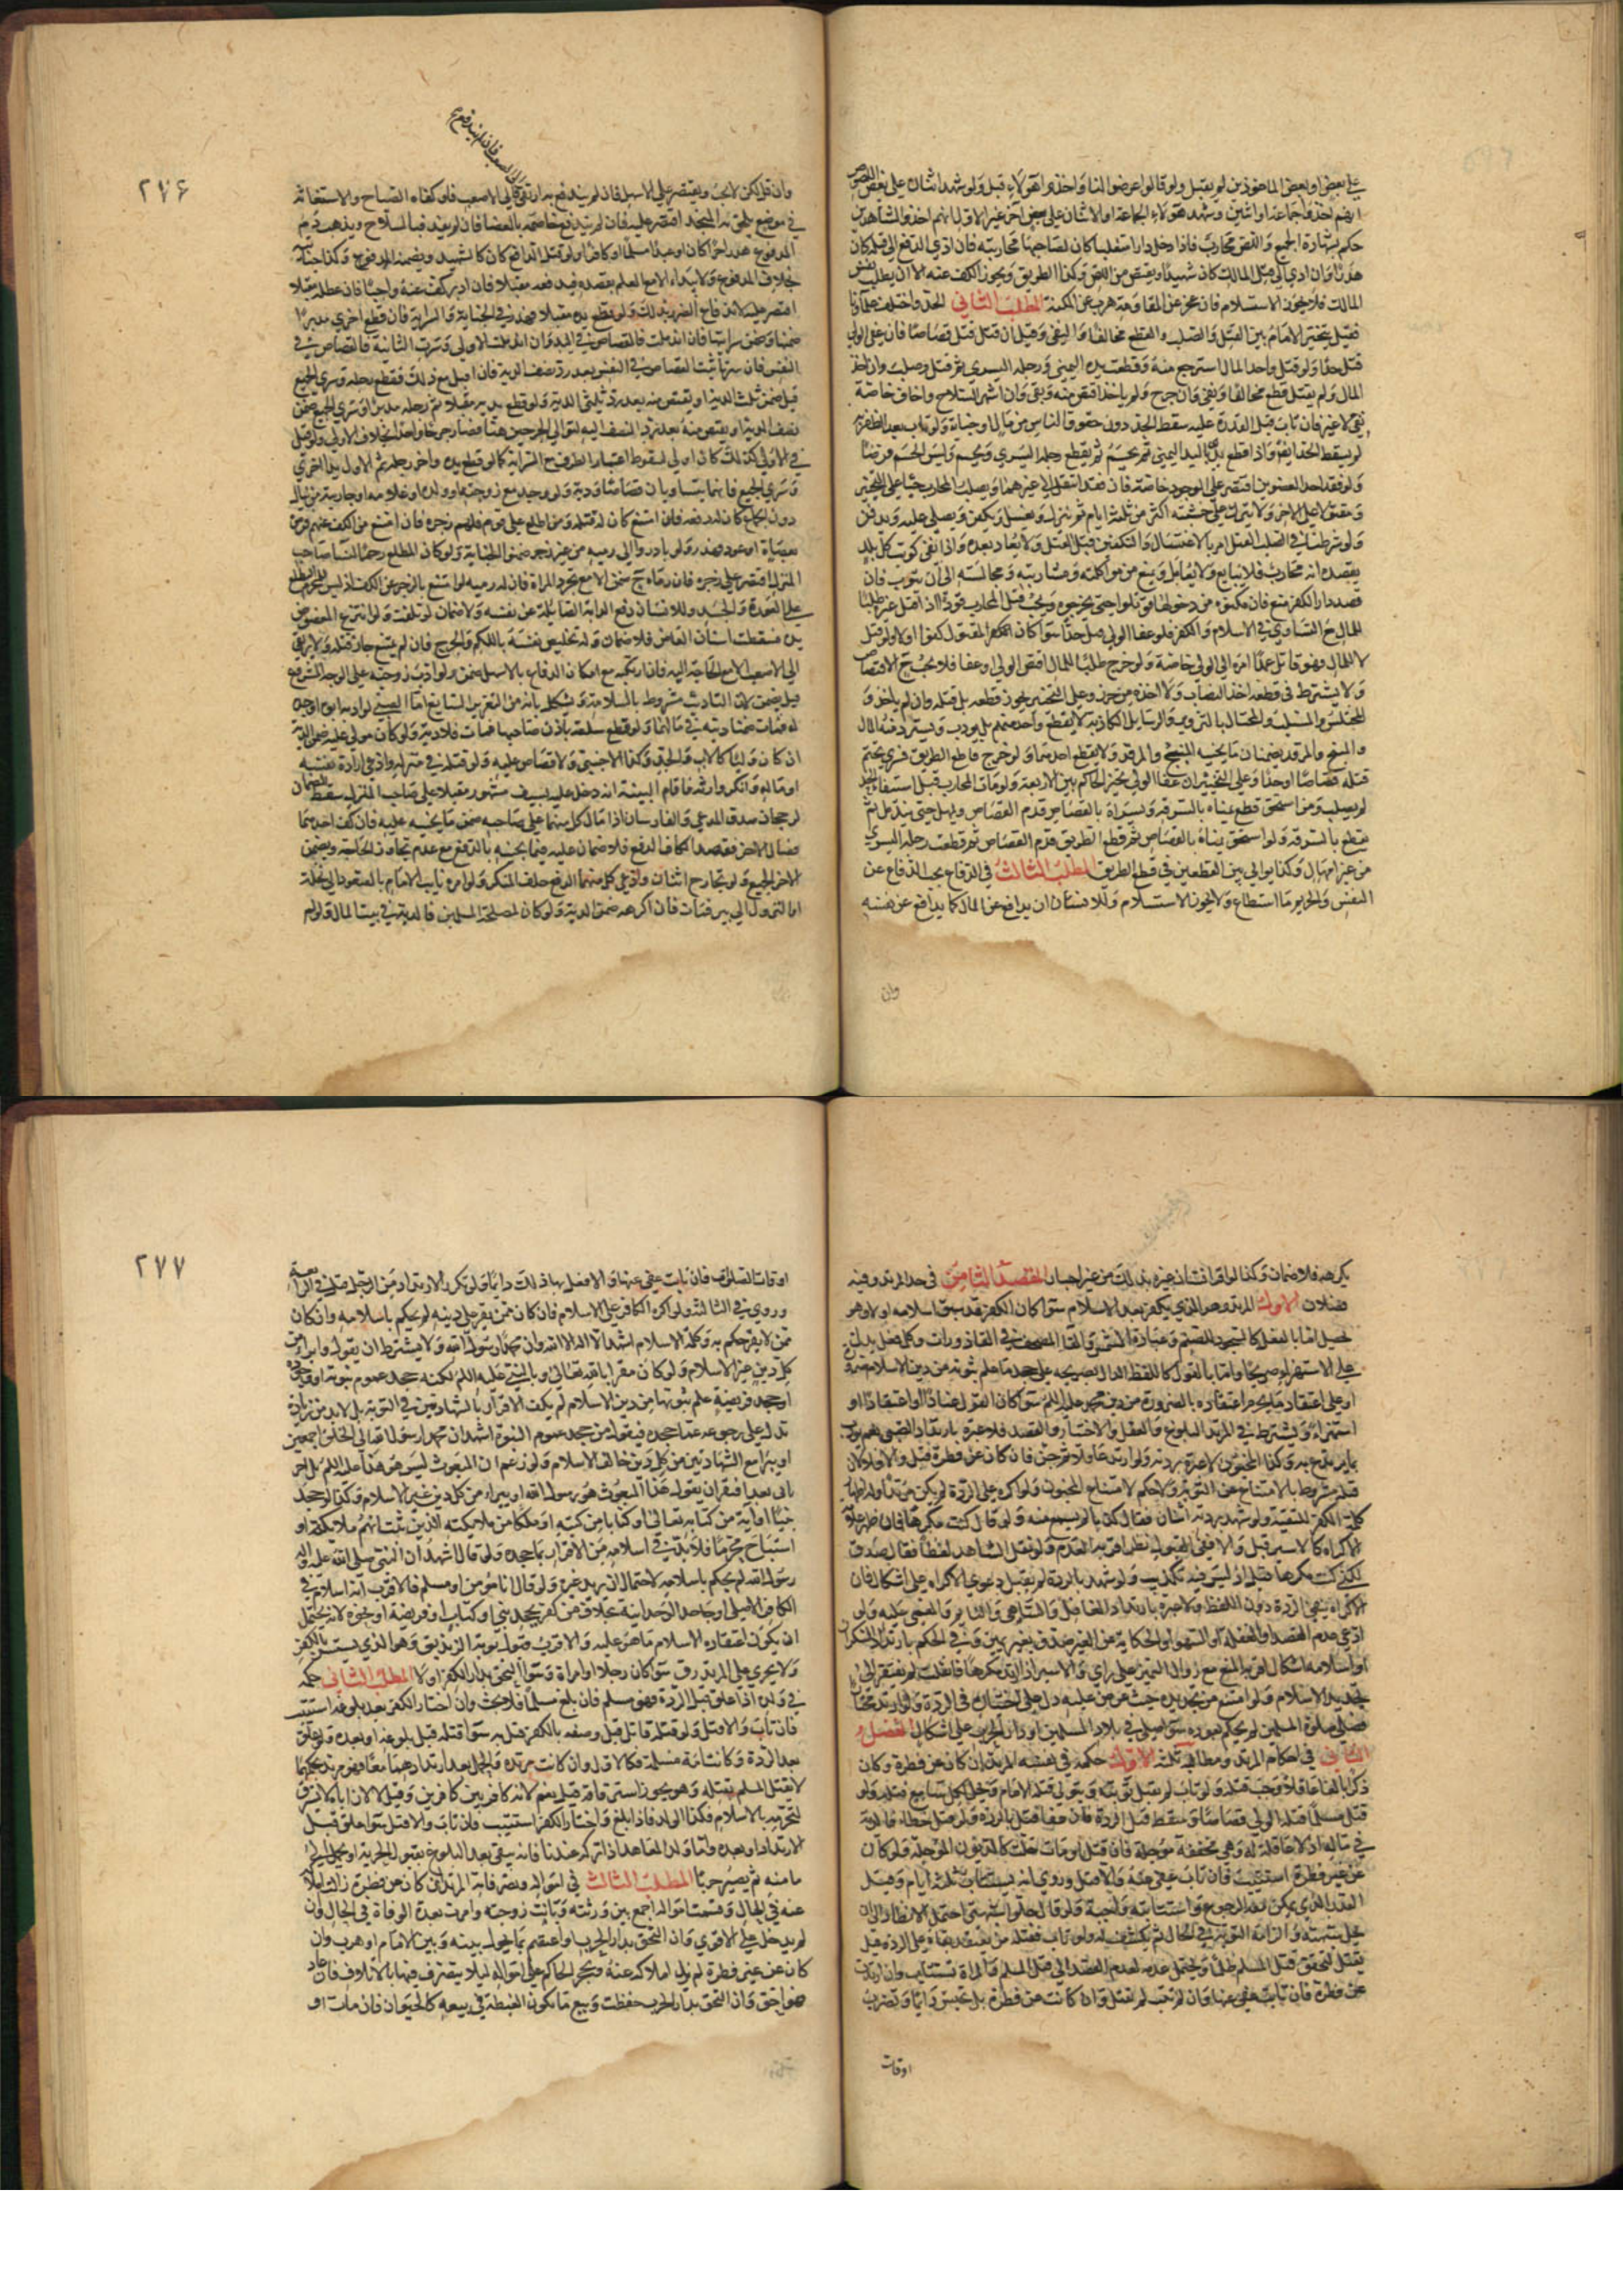 على بعض او بعض الماخوذين لم يقبل ولو قالوا عرضوا لنا واخذوا هؤلاء قبل ولو شهد اثنان على بعض اللصوص
انهم اخذوا جماعة او اثنين وشهد هؤلاء الجماعة او الاثنان على بعض اخر غير الاول انهم اخذوا الشاهدين
حكم بشهادة الجميع واللص محارب فاذا دخل دارا متغلبا كان لصاحبها محاربته فان ادي الدفع الى قتله كان
هدرا وان ادي الى قتل المالك كان شهيدا ويقتص من اللص وكذا الطريق ويجوز الكف عنه الا ان يطلب نفس
المالك فلا يجوز الاستسلام فان عجز عن المقاومة هرب مع المكنة المطلب الثاني الحد واختلف علماؤنا
فقيل يتخير الامام بين القتل والصلب والقطع مخالفا والنفي وقيل ان قتل قتل قصاصا فان عفى الولي
قتل حدا ولو قتل واخذ المال استرجع منه وقطعت يده اليمنى ورجله اليسري ثم قتل وصلب وان اخذ
المال ولم يقتل قطع مخالفا ونفي وان جرح ولم ياخذ اقتص منه ونفي وان اشهر السلاح واخاف خاصة
نفي لا غير فان تاب قبل القدرة عليه سقط الحد دون حقوق الناس من مال او جناية ولو تاب بعد الظفر به
لم يسقط الحد ايضا واذا قطع بدأ باليد اليمنى ثم يحسم ثم يقطع رجله اليسري ويحسم وليس الحسم فرضا
ولو فقد احد العضوين اقتصر على الموجود خاصة فان فقدا انتقل الى غيرهما ويصلب المحارب حيا على التخيير
ومقتولا على الاخر ولا يترك على خشبته اكثر من ثلثة ايام ثم ينزل ويغسل ويكفن ويصلى عليه ويدفن
ولو شرطنا في الصلب القتل امر بالاغتسال والتكفين قبل القتل ولا يعاد بعده واذا نفي كوتب كل بلد
يقصده انه محارب فلا يبايع ولا يعامل ويمنع من مواكلته ومشاربته ومجالسته الى ان يتوب فان
قصد دار الكفر منع فان مكنوه من دخولها قوتلوا حتى يخرجوه ويجب قتل المحارب قودا اذا قتل غيره طلبا
للمال مع التساوي في الاسلام والكفر فلو عفا الولي قتل حدا سوا كان المقتول كفوا اولا ولو قتل
لا للمال فهو قاتل عمدا امره الى الولي خاصة ولو جرح طلبا للمال اقتص الولي او عفا فلا يجب الاقتصاص
ولا يشترط في قطعه اخذ النصاب ولا اخذه من حرز وعلى التخيير يجوز قطعه بل قتله وان لم ياخذ و
المختلس والمستلب والمحتال بالتزوير والرسايل الكاذبة لا يقطع واحد منهم بل يودب ويسترد منه المال
والمبنج والمرقد يضمنان ما يجنيه البنج والمرقد ولا يقطع احدهما ولو جرح قاطع الطريق فسري تحتم
قتله قصاصا او حدا وعلى التخيير ان عفا الولي يخير الحاكم بين الاربعة ولو مات المحارب قبل استيفاء الحد
لم يصلب ومن استحق قطع يمناه بالسرقة ويسراه بالقصاص قدم القصاص ويمهل حتى يندمل ثم
يقطع بالسرقة ولو استحق يمناه بالقصاص ثم قطع الطريق قدم القصاص ثم قطعت رجله اليسري
من غير امهال وكذا يوالى بين القطعين في قطع الطريق المطلب الثالث في الدفاع يجب الدفاع عن
النفس والحريم ما استطاع ولا يجوز الاستسلام وللانسان ان يدافع عن المال كما يدافع عن نفسه
وان
٢٧۶
وان قل لكن لا يجب ويقتصر على الاسهل فان لم يندفع به ارتقى الى الاصعب فلو كفاه الصياح والاستغاثة
في موضع يلحقه المنجد اقتصر عليه فان لم يندفع خاصمه بالعصا فان لم يفد فبالسلاح ويذهب دم
المدفوع هدرا حرا كان او عبدا مسلما او كافرا ولو قتل الدافع كان كالشهيد ويضمنه المدفوع وكذا جنايته
بخلاف المدفوع ولا يبداء الا مع العلم بقصده فيدفعه مقبلا فان ادبر كف عنه واجبا فان عطله مقبلا
اقتصر عليه لاندفاع الضرر بذلك ولو قطع يده مقبلا فهدر في الجناية والسراية فان قطع اخري مدبرا
ضمنها وضمن سرايتها فان اندملت فالقصاص في اليد وان اندملت الاولى وسرت الثانية فالقصاص في
النفس فان سرتا ثبت القصاص في النفس بعد رد نصف الدية فان اقبل مع ذلك فقطع رجله وسري الجميع
قيل ضمن ثلث الدية او يقتص منه بعد رد ثلثي الدية ولو قطع يديه مقبلا ثم رجله مدبرا وسري الجميع ضمن
نصف الدية او يقتص منه بعد رد النصف اليه لتوالي الجرحين هنا فصارا جرحا واحدا بخلاف الاولى ولو قيل
في الاولى كذلك كان اولى لسقوط اعتبار الطرف مع السراية كما لو قطع يده واخر رجله ثم الاول يده الاخري
وسري الجميع فانهما يتساويان قصاصا ودية ولو وجد مع زوجته او ولده او غلامه او جاريته من ينال
دون الجماع كان له دفعه فان امتنع كان له قتله ومن اطلع على قوم فلهم زجره فان امتنع من الكف عنهم فرموه
بحصاة او عود فهدر ولو بادروا الى رميه من غير زجر ضمنوا الجناية ولو كان المطلع رحما لنسا صاحب
المنزل اقتصر على زجره فان رماه ح ضمن الا مع تجرد المراة فان له رميه لو امتنع بالزجر عن الكف اذ ليس للمحرم الاطلاع
على العورة والجسد وللانسان دفع الدابة الصايلة عن نفسه ولا ضمان لو تلفت ولو انتزع المعضوض
يده فسقطت اسنان العاض فلا ضمان وله تخليص نفسه باللكم والجرح فان لم يمتنع جاز قتله ولا يرتقي
الى الاصعب الا مع الحاجة اليه فان ارتكبه مع امكان الدفاع بالاسهل ضمن ولو ادب زوجته على الوجه المشروع
قيل يضمن لان التاديب مشروط بالسلامة ويشكل بانه من التعزير السايغ اما الصبي لو ادبه ابوه او جده
له فمات ضمنا ديته في مالهما ولو قطع سلعة باذن صاحبها فمات فلا دية ولو كان مولى عليه ضمن الدية
ان كان وليا كالاب والجد وكذا الاجنبي ولا قصاص عليه ولو قتله في منزله وادعى ارادة نفسه
او ماله وانكر وارثه فاقام البينة انه دخل عليه بسيف مشهور مقبلا على صاحب المنزل سقط الضمان
لرجحان صدق المدعي والفارسان اذا صال كل منهما على صاحبه ضمن ما يجنيه عليه فان كف احدهما
فصال الاخر فقصد الكاف الدفع فلا ضمان عليه فيما يجنيه بالدفع مع عدم تجاوز الحاجة ويضمن
الاخر الجميع ولو تجارح اثنان وادعى كل منهما الدفع حلف المنكر ولو امره نايب الامام بالصعود الى نخلة
او النزول الى بير فمات فان اكرهه ضمن الدية ولو كان لمصلحة المسلمين فالدية في بيت المال ولو لم
يكرهه فلا ضمان وكذا لو امر انسان غيره بذلك من غير اجبار المقصد الثامن في حد المرتد وفيه
فصلان الاول المرتد وهو الذي يكفر بعد الاسلام سوا كان الكفر قد سبق اسلامه اولا وهو
يحصل اما بالفعل كالسجود للصنم وعبادة الشمس والقا المصحف في القاذورات وكل فعل يدل
على الاستهزاء صريحا واما بالقول كاللفظ الدال بصريحه على جحد ما علم ثبوته من دين الاسلام ضرورة
او على اعتقاد ما يحرم اعتقاده بالضرورة من دين محمد عليه السلم سوا كان القول عنادا او اعتقادا او
استهزاء ويشترط في المرتد البلوغ والعقل والاختيار والقصد فلا عبرة بارتداد الصبي نعم يودب
بما يرتدع به وكذا المجنون لا عبرة بردته ولو ارتد عاقلا ثم جن فان كان عن فطرة قتل والا فلا لان
قتله مشروط بالامتناع عن التوبة ولا حكم لامتناع المجنون ولو اكره على الردة لم يكن مرتدا وله اظهار
كلمة الكفر للتقية ولو شهد بردته اثنان فقال كذبا لم يسمع منه ولو قال كنت مكرها فان ظهر علامة
الاكراه كالاسر قبل والا ففي القبول نظر اقربه العدم ولو نقل الشاهد لفظا فقال صدق
لكني كنت مكرها قبل اذ ليس فيه تكذيب ولو شهد بالردة لم يقبل دعوي الاكراه على اشكال فان
الاكراه ينفي الردة دون اللفظ ولا عبرة بارتداد الغافل والساهي والنايم والمغمى عليه ولو
ادعى عدم القصد او الغفلة او السهو او الحكاية عن الغير صدق بغير يمين وفي الحكم بارتداد السكران
او اسلامه اشكال اقربه المنع مع زوال التمييز على راي والاسير ان ارتد مكرها فافلت لم يفتقر الى
تجديد الاسلام ولو امتنع من تجديده حيث عرض عليه دل على اختياره في الردة ولو ارتد مختارا
فصلى صلوة المسلمين لم يحكم بعوده سوا صلى في بلاد المسلمين او دار الحرب على اشكال الفصل
الثاني في احكام المرتد ومطالبه ثلثة الاول حكمه في نفسه المرتد ان كان عن فطرة وكان
ذكرا بالغا عاقلا وجب قتله ولو تاب لم يقبل توبته ويتولى قتله الامام ويحل لكل سامع قتله ولو
قتل مسلما قتله الولي قصاصا وسقط قتل الردة فان عفا قتل بالردة ولو قتل خطاء فالدية
في ماله اذ لا عاقلة له وهي مخففة مؤجلة فان قتل او مات حلت كالديون المؤجلة ولو كان
عن غير فطرة استتيب فان تاب عفي عنه والا قتل وروي انه يستتاب ثلثة ايام وقيل
القدر الذي يمكن معه الرجوع واستتابته واجبة ولو قال حلوا شبهتي احتمل الانظار الى ان
يحل شبهته والزامه التوبة في الحال ثم يكشف له ولو تاب فقتله من يعتقد بقاه على الردة قيل
يقتل لتحقق قتل المسلم ظلما ويحتمل عدمه لعدم القصد الى قتل المسلم والمراة تستتاب وان ارتدت
عن فطرة فان تابت عفي عنها وان لم تتب لم تقتل وان كانت عن فطرة بل تحبس دايما وتضرب
اوقات
٢٧٧
اوقات الصلوة فان تابت عفي عنها والا فعل بها ذلك دايما ولو تكرر الارتداد من الرجل قتل في الرابعة
وروي في الثالثة ولو اكره الكافر على الاسلام فان كان ممن يقر على دينه لم يحكم باسلامه وان كان
ممن لا يقر حكم به وكلمة الاسلام اشهد ان لا اله الا الله وان محمدا رسول الله ولا يشترط ان يقول وابراء من
كل دين غير الاسلام ولو كان مقرا بالله تعالى وبالنبي عليه السلم لكنه جحد عموم نبوته او وجوده
او جحد فريضة علم ثبوتها من دين الاسلام لم يكف الاقرار بالشهادتين في التوبة بل لا بد من زيادة
تدل على رجوعه عما جحده فيقول من جحد عموم النبوة اشهد ان محمدا رسول الله الى الخلق اجمعين
او يبرا مع الشهادتين من كل دين خالف الاسلام ولو زعم ان المبعوث ليس هو هذا عليه السلم بل اخر
ياتي بعد افتقر ان يقول هذا المبعوث هو رسول الله او يبراء من كل دين غير الاسلام وكذا لو جحد
نبيا او اية من كتابه تعالى او كتابا من كتبه او ملكا من ملايكته الذين ثبت انهم ملائكة او
استباح محرما فلا بد في اسلامه من الاقرار بما جحده ولو قال اشهد ان النبي صلى الله عليه واله
رسول الله لم يحكم باسلامه لاحتمال ان يريد غيره ولو قال انا مومن او مسلم فالاقرب انه اسلام في
الكافر الاصلي او جاحد الوحدانية بخلاف من كفر بجحد نبي او كتاب او فريضة او نحوه لانه يحتمل
ان يكون اعتقاده الاسلام ما هو عليه والاقرب قبول توبة الزنديق وهو الذي يستتر بالكفر
ولا يجري على المرتد رق سوا كان رجلا او امراة وسوا التحق بدار الكفر او لا المطلب الثاني حكمه
في ولده اذا علق قبل الردة فهو مسلم فان بلغ مسلما فلا بحث وان اختار الكفر بعد بلوغه استتيب
فان تاب والا قتل ولو قتله قاتل قبل وصفه بالكفر قتل به سوا قتله قبل بلوغه او بعده ولو علق
بعد الردة وكانت امه مسلمة فكالاول وان كانت مرتدة والحمل بعد ارتدادهما معا فهو مرتد بحكمهما
لا يقتل المسلم بقتله وهو يجوز استرقاقه قيل نعم لانه كافر بين كافرين وقيل لا لان اباه لا يسترق
لتحرمه بالاسلام فكذا الولد فاذا بلغ واختار الكفر استتيب فان تاب والا قتل سوا علق قبل
الارتداد او بعده واما ولد المعاهد اذا تركه عندنا فانه يبقى بعد البلوغ بقبول الجزية او يحمل الى
مامنه ثم يصير حربا المطلب الثالث في امواله وتصرفاته المرتد ان كان عن فطرة زالت املاكه
عنه في الحال وقسمت امواله اجمع بين ورثته وبانت زوجته وامرت بعدة الوفاة في الحال وان
لم يدخل على الاقوي وان التحق بدار الحرب او اعتصم بما يحول بينه وبين الامام او هرب وان
كان عن غير فطرة لم تزل املاكه عنه ويحجر الحاكم على امواله لئلا يتصرف فيها بالاتلاف فان عاد
فهو احق وان التحق بدار الحرب حفظت وبيع ما يكون الغبطة في بيعه كالحيوان فان مات او